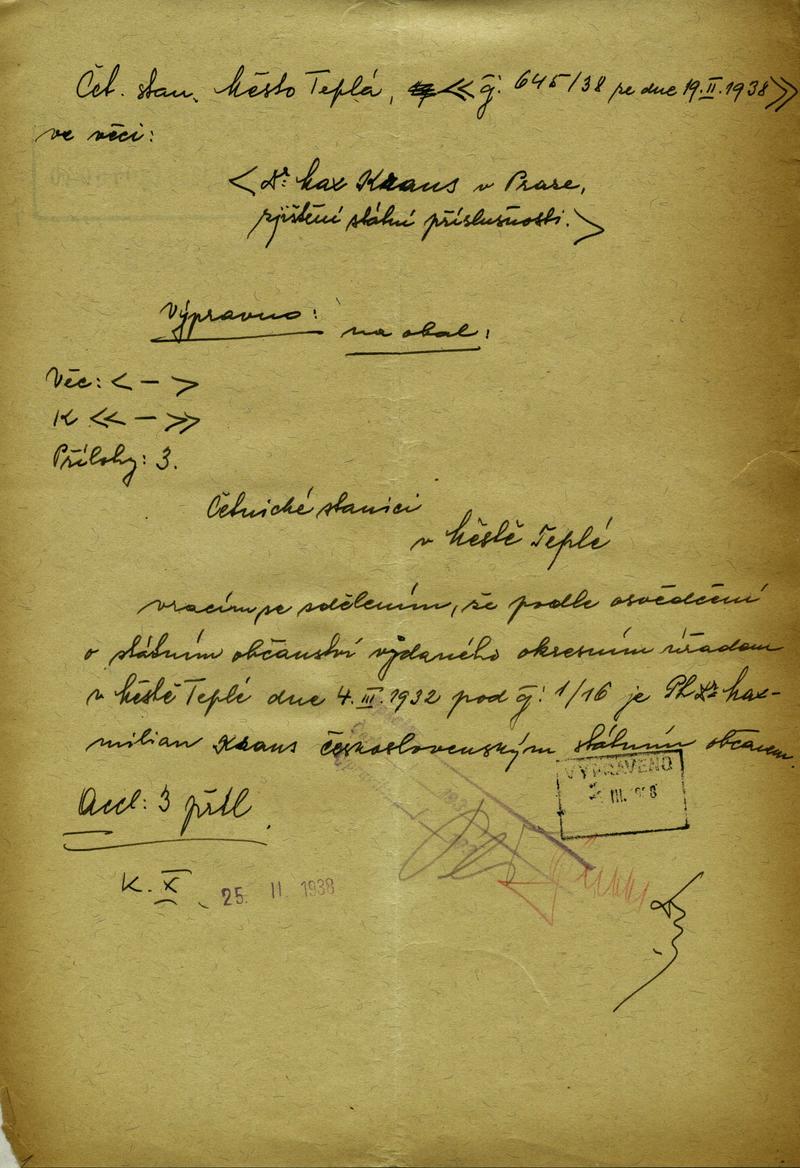 Čet. stan. Město Teplá, << čj. 645/38 ze dne 19.II.1938 >>
ve věci:
< Dr. Max Kraus v Praze,
zjištění státní příslušnosti. >
Výpravno: na obal:
Věc: < — >
K << — >>
Přílohy: 3.
Četnické stanici
v Městě Teplé
vracím se sdělením, že podle osvědčení
o státním občanství vydaného okresním úřadem
v Městě Teplé dne 4.III.1932 pod čj. 1/16 je PhDr. Max-
milian Kraus československým státním občanem.
VYPRAVENO
III. 1938
Accl: 3 příl.
K. X 25. II 1938